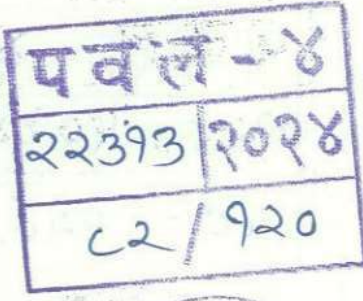 पवल - ४
२२३१३ २०२४
८२ / १२०